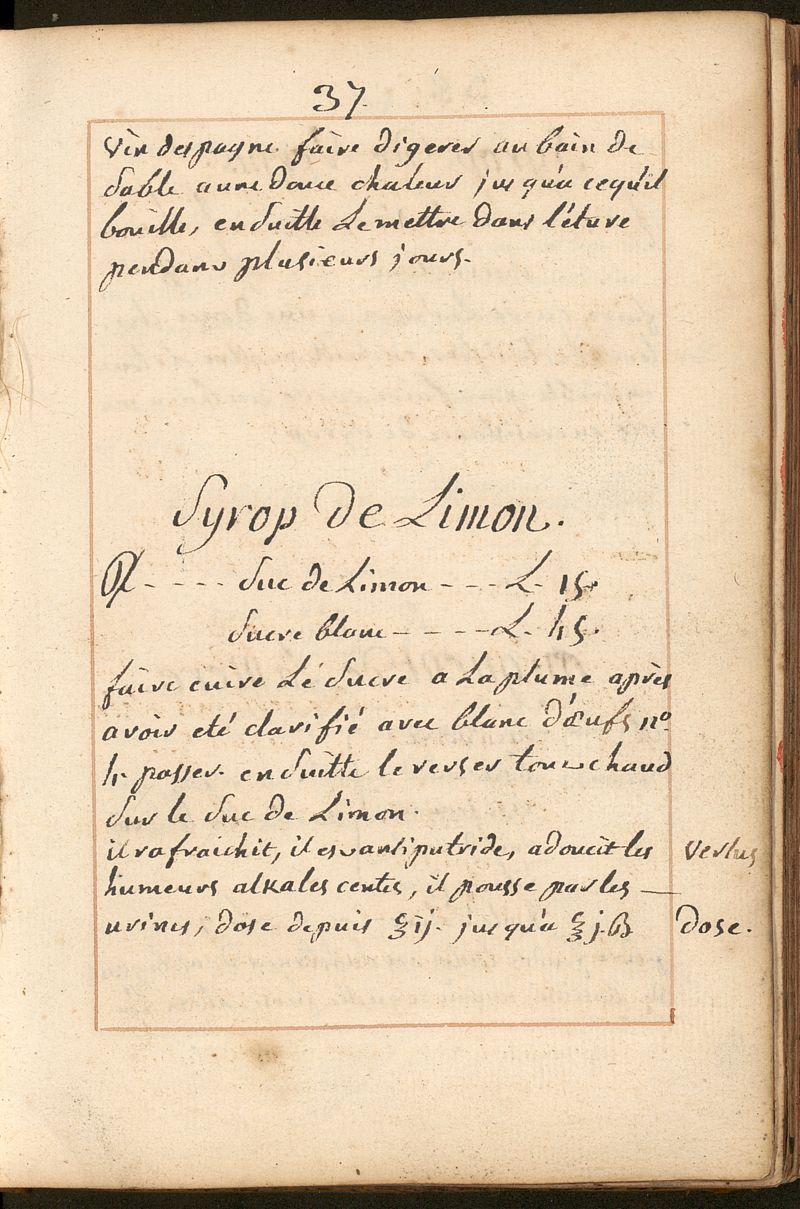 37.
vin despagne faire digerer au bain de
sable a une douce chaleur jusqu'a cequ'il
bouille, en suitte Le mettre dans l'étuve
pendant plusieurs jours.
Syrop de Limon.
♃ - - - - suc de Limon - - - L. 15.
sucre blanc - - - - L. 45.
faire cuire Lé sucre a La plume après
avoir eté clarifié avec blanc d'œufs nº
4. passer. en suitte le verser tout chaud
sur le suc de Limon.
il rafraichit, il est antiputride, adoucit les vertus
humeurs alkalescentes, il pousse par les —
urines, dose depuis ʒij. jusqu'a ℥j.ß dose.